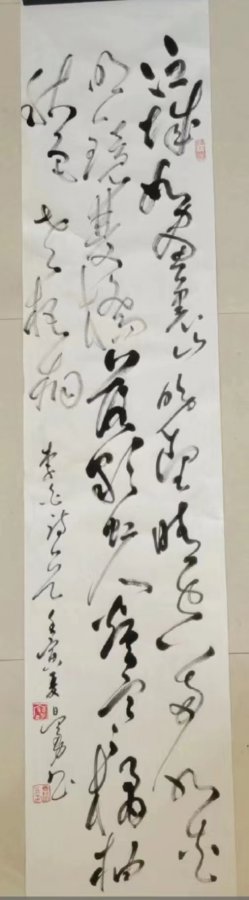 江城如畫裏山晚望晴空兩水夾
明鏡雙橋落彩虹人烟寒橘柚
秋色老梧桐
李白诗一首 壬寅夏日 书